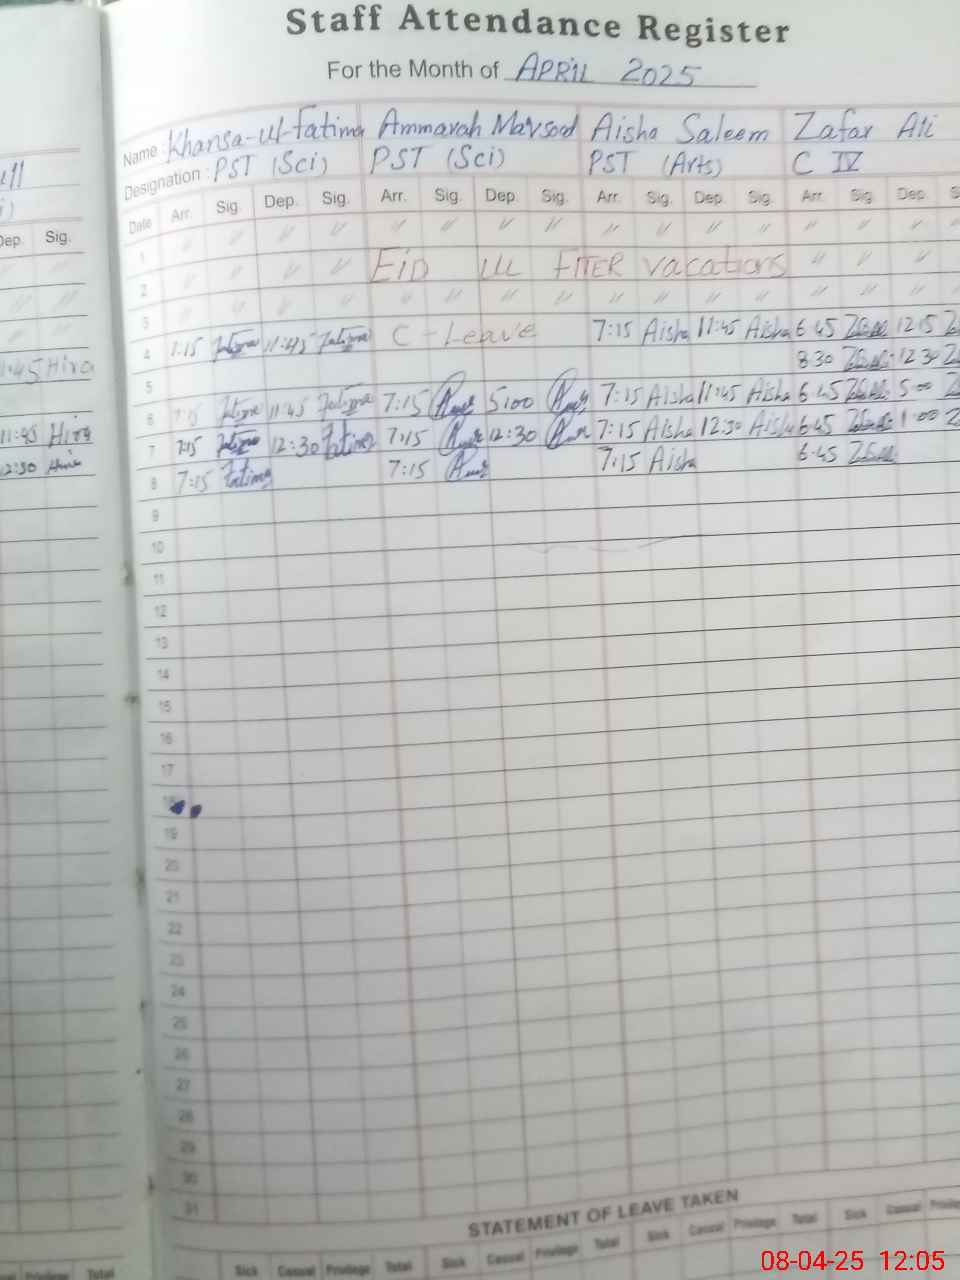 Staff Attendance Register
For the Month of APRIL 2025
Name : Khansa-ul-fatima Ammarah Marsood Aisha Saleem Zafar Ali
Designation : PST (Sci) PST (Sci) PST (Arts) C IV
Date Arr. Sig. Dep. Sig. Arr. Sig. Dep. Sig. Arr. Sig. Dep. Sig. Arr. Sig. Dep.
1 // // // // // // // // // // // // // // //
2 // // // // Eid Ul FITER vacations // // //
3 // // // // // // // // // // // // // // //
4 7:15 Fatima 11:45 Fatima C - Leave 7:15 Aisha 11:45 Aisha 6:45 12:15
5 8:30 12:30
6 Fatima 11:45 Fatima 7:15 5:00 7:15 Aisha 11:45 Aisha 6:45 5:00
7 7:15 Fatima 12:30 Fatima 7:15 12:30 7:15 Aisha 12:30 Aisha 6:45 1:00
8 7:15 Fatima 7:15 7:15 Aisha 6:45
9
10
11
12
13
14
15
16
17
18
19
20
21
22
23
24
25
26
27
28
29
30
31
STATEMENT OF LEAVE TAKEN
Sick Casual Privilege Total Sick Casual Privilege Total Sick Casual Privilege Total Sick Casual
Dep. Sig.
// //
// //
1:45 Hira
11:45 Hira
12:30 Hira
Privilege Total
08-04-25 12:05